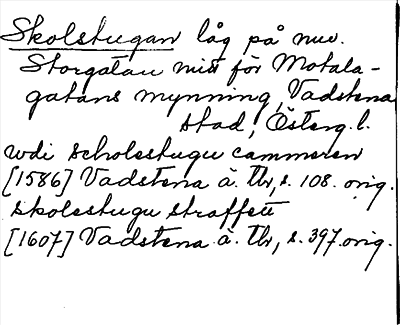 Skolstugan låg på nuv.
Storgatan mitt för Motala-
gatans mynning, Vadstena
stad, Österg. l.
wdi scholestugu cammeren
[1586] Vadstena ä. Tb, s. 108. orig.
skolestugu straffett
[1607] Vadstena ä. Tb, s. 397. orig.